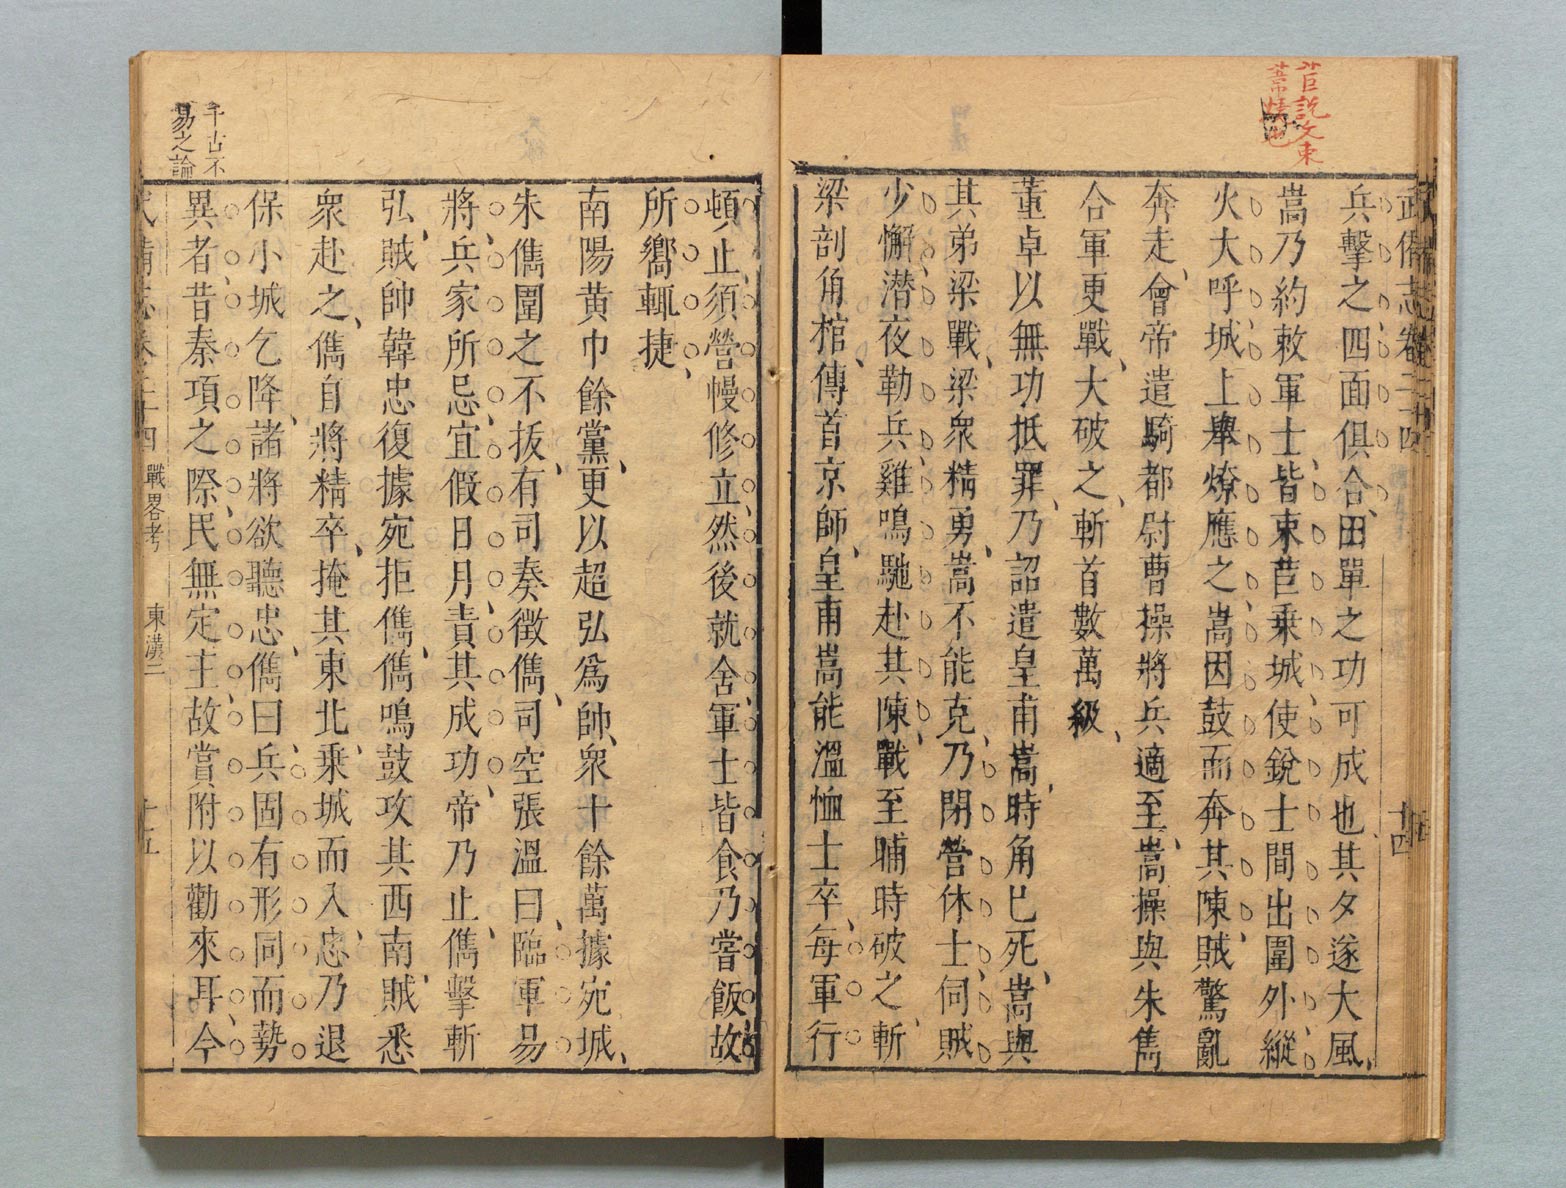 苣說文束
葦燒也
武備志卷二十四
十四
兵擊之四面俱合、田單之功可成也、其夕遂大風、
嵩乃約敕軍士、皆束苣乗城、使銳士間出圍外、縱
火大呼、城上舉燎應之、嵩因鼓而奔其陳、賊驚亂
奔走、會帝遣騎都尉曹操將兵適至、嵩操與朱雋
合軍更戰、大破之、斬首數萬級、
董卓以無功抵罪、乃詔遣皇甫嵩、時角已死、嵩與
其弟梁戰、梁衆精勇、嵩不能克、乃閉營休士、伺賊
少懈、潜夜勒兵、雞鳴馳赴其陳、戰至晡時破之、斬
梁剖角棺、傳首京師、皇甫嵩能溫恤士卒、每軍行
頓止、須營幔修立、然後就舍、軍士皆食、乃嘗飯、故
所嚮輒捷、
南陽黄巾餘黨、更以超弘爲帥、衆十餘萬據宛城、
朱儁圍之不拔、有司奏徵儁、司空張溫曰、臨軍易
將、兵家所忌、宜假日月責其成功、帝乃止、儁擊斬
弘、賊帥韓忠復據宛拒儁、儁鳴鼓攻其西南、賊悉
衆赴之、儁自將精卒、掩其東北、乗城而入、忠乃退
保小城乞降、諸將欲聽忠、儁曰、兵固有形同而勢
異者、昔秦項之際、民無定主、故賞附以勸來耳、今
千古不
易之論
武備志卷二十四 戰畧考 東漢二 十五